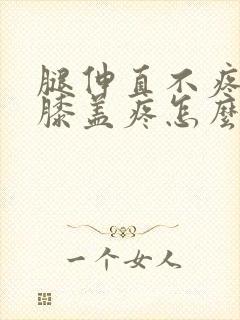 腿伸直不疼
膝盖疼怎麽
一个女人